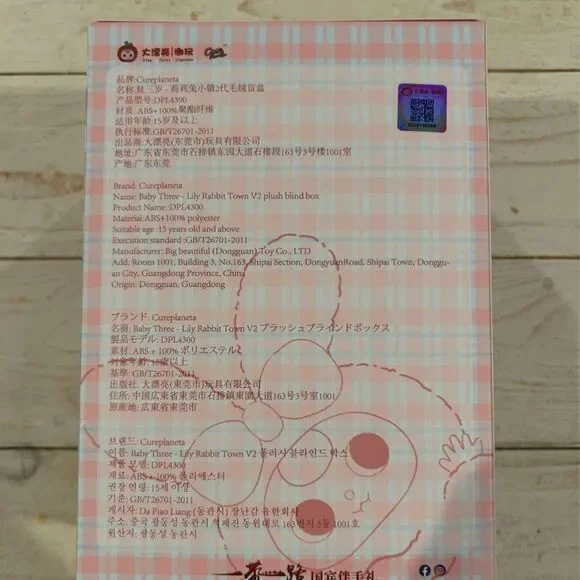 大漂亮 潮玩
品牌:Cureplaneta
名称:娃三岁 - 莉莉兔小镇2代毛绒盲盒
产品型号:DPL4300
材质: ABS+100%聚酯纤维
适用年龄:15岁及以上
执行标准:GB/T26701-2011
出品商:大漂亮(东莞市)玩具有限公司
地址:广东省东莞市石排镇东园大道石排段163号3号楼1001室
产地:广东东莞
Brand: Cureplaneta
Name: Baby Three - Lily Rabbit Town V2 plush blind box
Product Name :DPL4300
Material:ABS+100% polyester
Suitable age :15 years old and above
Execution standard :GB/T26701-2011
Manufacturer: Big beautiful (Dongguan) Toy Co., LTD
Add: Room 1001, Building 3, No.163, Shipai Section, DongyuanRoad, Shipai Town, Donggu-
an City, Guangdong Province, China
Origin: Dongguan, Guangdong
ブランド: Cureplaneta
名前: Baby Three - Lily Rabbit Town V2 プラッシュブラインドボックス
製品モデル: DPL4300
素材: ABS + 100% ポリエステル
対象年齢: 15歳以上
基準: GB/T26701-2011
出版社: 大漂亮(東莞市)玩具有限公司
住所: 中国広東省東莞市石排鎮東園大道163号3号室1001
原産地: 広東省東莞市
브랜드: Cureplaneta
이름: Baby Three - Lily Rabbit Town V2 플러시 블라인드 박스
제품 모델: DPL4300
재료: ABS + 100% 폴리에스터
권장 연령: 15세 이상
기준: GB/T26701-2011
게시자: Da Piao Liang (동관시) 장난감 유한회사
주소: 중국 광동성 동관시 석패진 동원대로 163번지 3동 1001호
원산지: 광동성 동관시
一带一路 国宾伴手礼